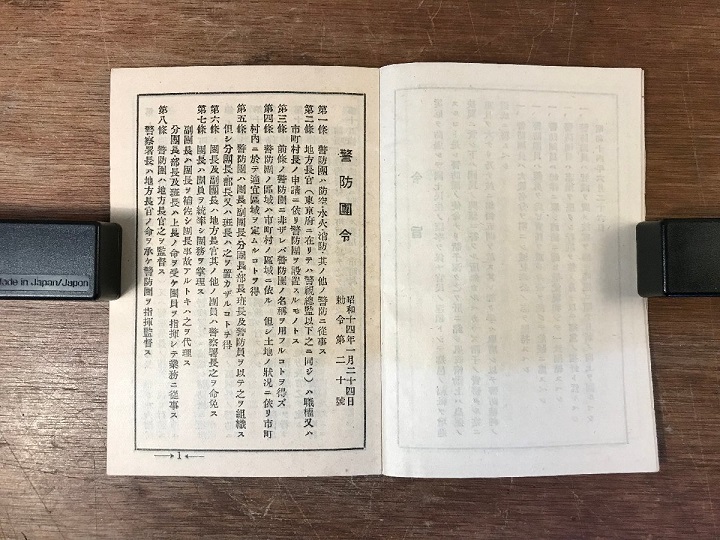 警防團令
昭和十四年一月二十四日
勅令第二十號
第一條 警防團ハ防空、水火消防其ノ他ノ警防ニ從事ス
第二條 地方長官(東京府ニ在リテハ警視總監以下之ニ同ジ)ハ職權又ハ
市町村長ノ申請ニ依リ警防團ヲ設置スルモノトス
第三條 前條ノ警防團ニ非ザレバ警防團ノ名稱ヲ用フルコトヲ得ズ
第四條 警防團ノ區域ハ市町村ノ區域ニ依ル 但シ土地ノ狀況ニ依リ市町
村內ニ於テ適宜區域ヲ定ムルコトヲ得
第五條 警防團ハ團長、副團長、分團長、部長、班長及警防員ヲ以テ之ヲ組織ス
但シ分團長、部長又ハ班長ハ之ヲ置カザルコトヲ得
第六條 團長及副團長ハ地方長官其ノ他ノ團員ハ警察署長之ヲ命免ス
第七條 團長ハ團員ヲ統率シ團務ヲ掌理ス
副團長ハ團長ヲ補佐シ團長事故アルトキハ之ヲ代理ス
分團長、部長及班長ハ上長ノ命ヲ受ケ團員ヲ指揮シテ業務ニ從事ス
第八條 警防團ハ地方長官之ヲ監督ス
警察署長ハ地方長官ノ命ヲ承ケ警防團ヲ指揮監督ス
1
Made in Japan/Japon